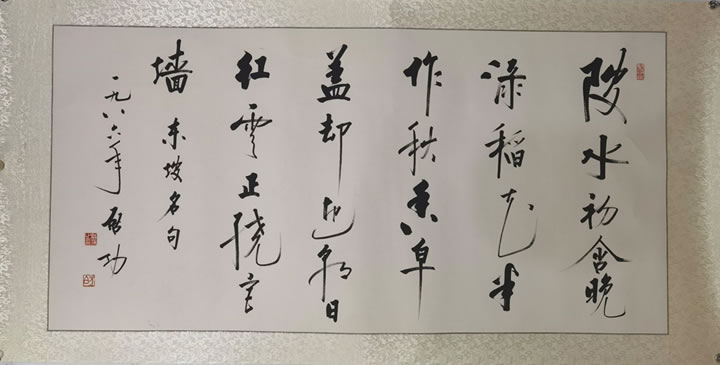 陂水初含晚
渌稻花半
作秋香皁
盖却迎朝日
红云正绕宫
墙 东坡名句
一九八六年 启功